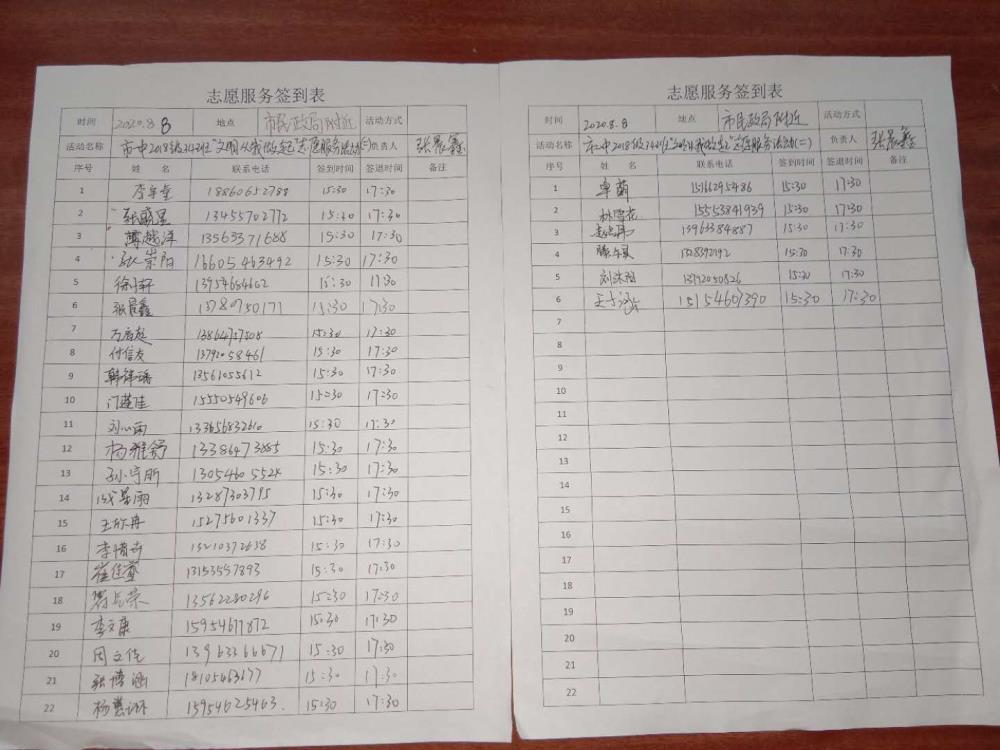 志愿服务签到表
时间 2020.8.8 地点 市民政局附近 活动方式
活动名称 市一中2018级343班"文明从我做起"志愿服务活动(二) 负责人 张晨鑫
序号 姓名 联系电话 签到时间 签退时间 备注
1 18860652788 15:30 17:30
2 张盛星 13455702772 15:30 17:30
3 薄越洋 13563371688 15:30 17:30
4 张崇阳 16605463492 15:30 17:30
5 徐轩 13954654602 15:30 17:30
6 张晨鑫 13780750171 15:30 17:30
7 15:30 17:30
8 付信友 13792058461 15:30 17:30
9 13561055612 15:30 17:30
10 门莲佳 15550549606 15:30 17:30
11 刘心雨 15:30 17:30
12 杨雅舒 13386473885 15:30 17:30
13 孙宁昕 15:30 17:30
14 13287303795 15:30 17:30
15 王欣冉 15275601337 15:30 17:30
16 13210372638 15:30 17:30
17 13153557893 15:30 17:30
18 13562280296 15:30 17:30
19 李文康 15954677872 15:30 17:30
20 周文佳 13963366671 15:30 17:30
21 张博涵 18105463177 15:30 17:30
22 15954625463. 15:30 17:30
志愿服务签到表
时间 2020.8.8 地点 市民政局附近 活动方式
活动名称 市一中2018级344班"文明从我做起"志愿服务活动(二) 负责人 张晨鑫
序号 姓名 联系电话 签到时间 签退时间 备注
1 单萌 15166295486 15:30 17:30
2 林雪花 15553841939 15:30 17:30
3 13963384887 15:30 17:30
4 15:30 17:30
5 刘沐阳 13792050826 15:30 17:30
6 15154601390 15:30 17:30
7
8
9
10
11
12
13
14
15
16
17
18
19
20
21
22